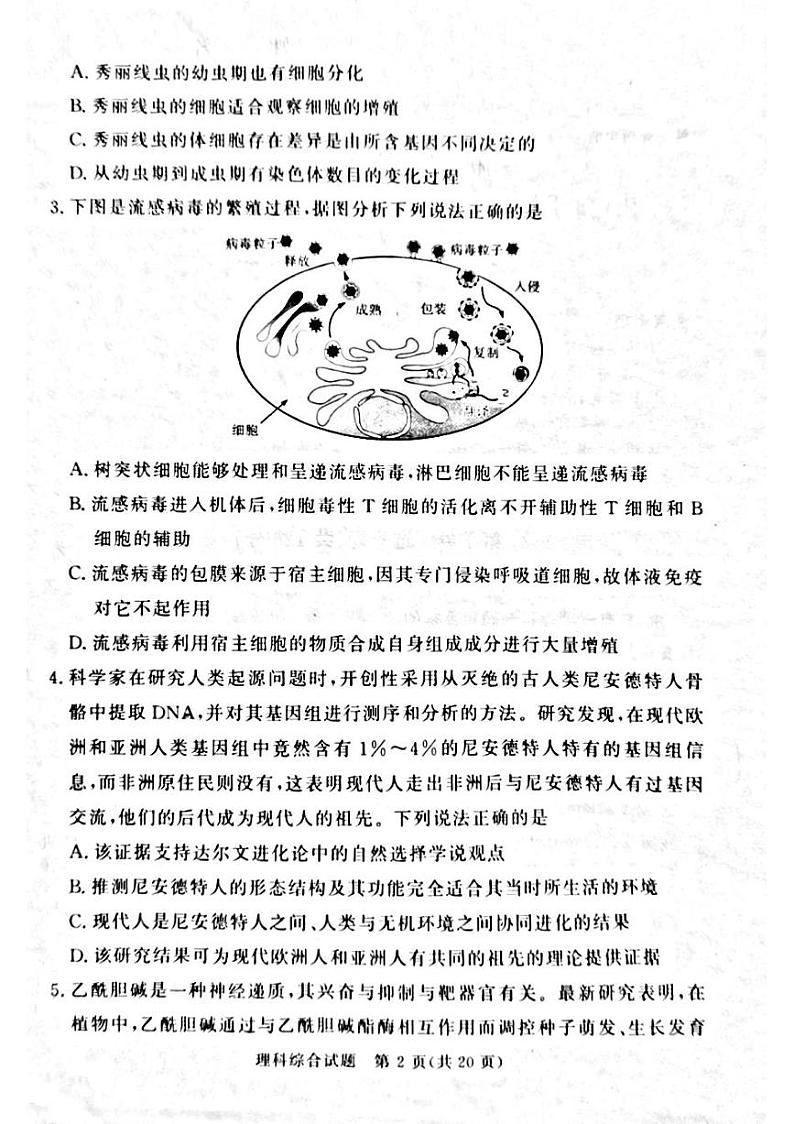 A. 秀丽线虫的幼虫期也有细胞分化
B. 秀丽线虫的细胞适合观察细胞的增殖
C. 秀丽线虫的体细胞存在差异是由所含基因不同决定的
D. 从幼虫期到成虫期有染色体数目的变化过程
3. 下图是流感病毒的繁殖过程,据图分析下列说法正确的是
病毒粒子
释放
病毒粒子
入侵
成熟
包装
复制
2
细胞
A. 树突状细胞能够处理和呈递流感病毒,淋巴细胞不能呈递流感病毒
B. 流感病毒进人机体后,细胞毒性 T 细胞的活化离不开辅助性 T 细胞和 B
细胞的辅助
C. 流感病毒的包膜来源于宿主细胞,因其专门侵染呼吸道细胞,故体液免疫
对它不起作用
D. 流感病毒利用宿主细胞的物质合成自身组成成分进行大量增殖
4. 科学家在研究人类起源问题时,开创性采用从灭绝的古人类尼安德特人骨
骼中提取 DNA,并对其基因组进行测序和分析的方法。研究发现,在现代欧
洲和亚洲人类基因组中竟然含有 1%~4%的尼安德特人特有的基因组信
息,而非洲原住民则没有,这表明现代人走出非洲后与尼安德特人有过基因
交流,他们的后代成为现代人的祖先。下列说法正确的是
A. 该证据支持达尔文进化论中的自然选择学说观点
B. 推测尼安德特人的形态结构及其功能完全适合其当时所生活的环境
C. 现代人是尼安德特人之间、人类与无机环境之间协同进化的结果
D. 该研究结果可为现代欧洲人和亚洲人有共同的祖先的理论提供证据
5. 乙酰胆碱是一种神经递质,其兴奋与抑制与靶器官有关。最新研究表明,在
植物中,乙酰胆碱通过与乙酰胆碱酯酶相互作用而调控种子萌发、生长发育
理科综合试题 第 2 页(共 20 页)